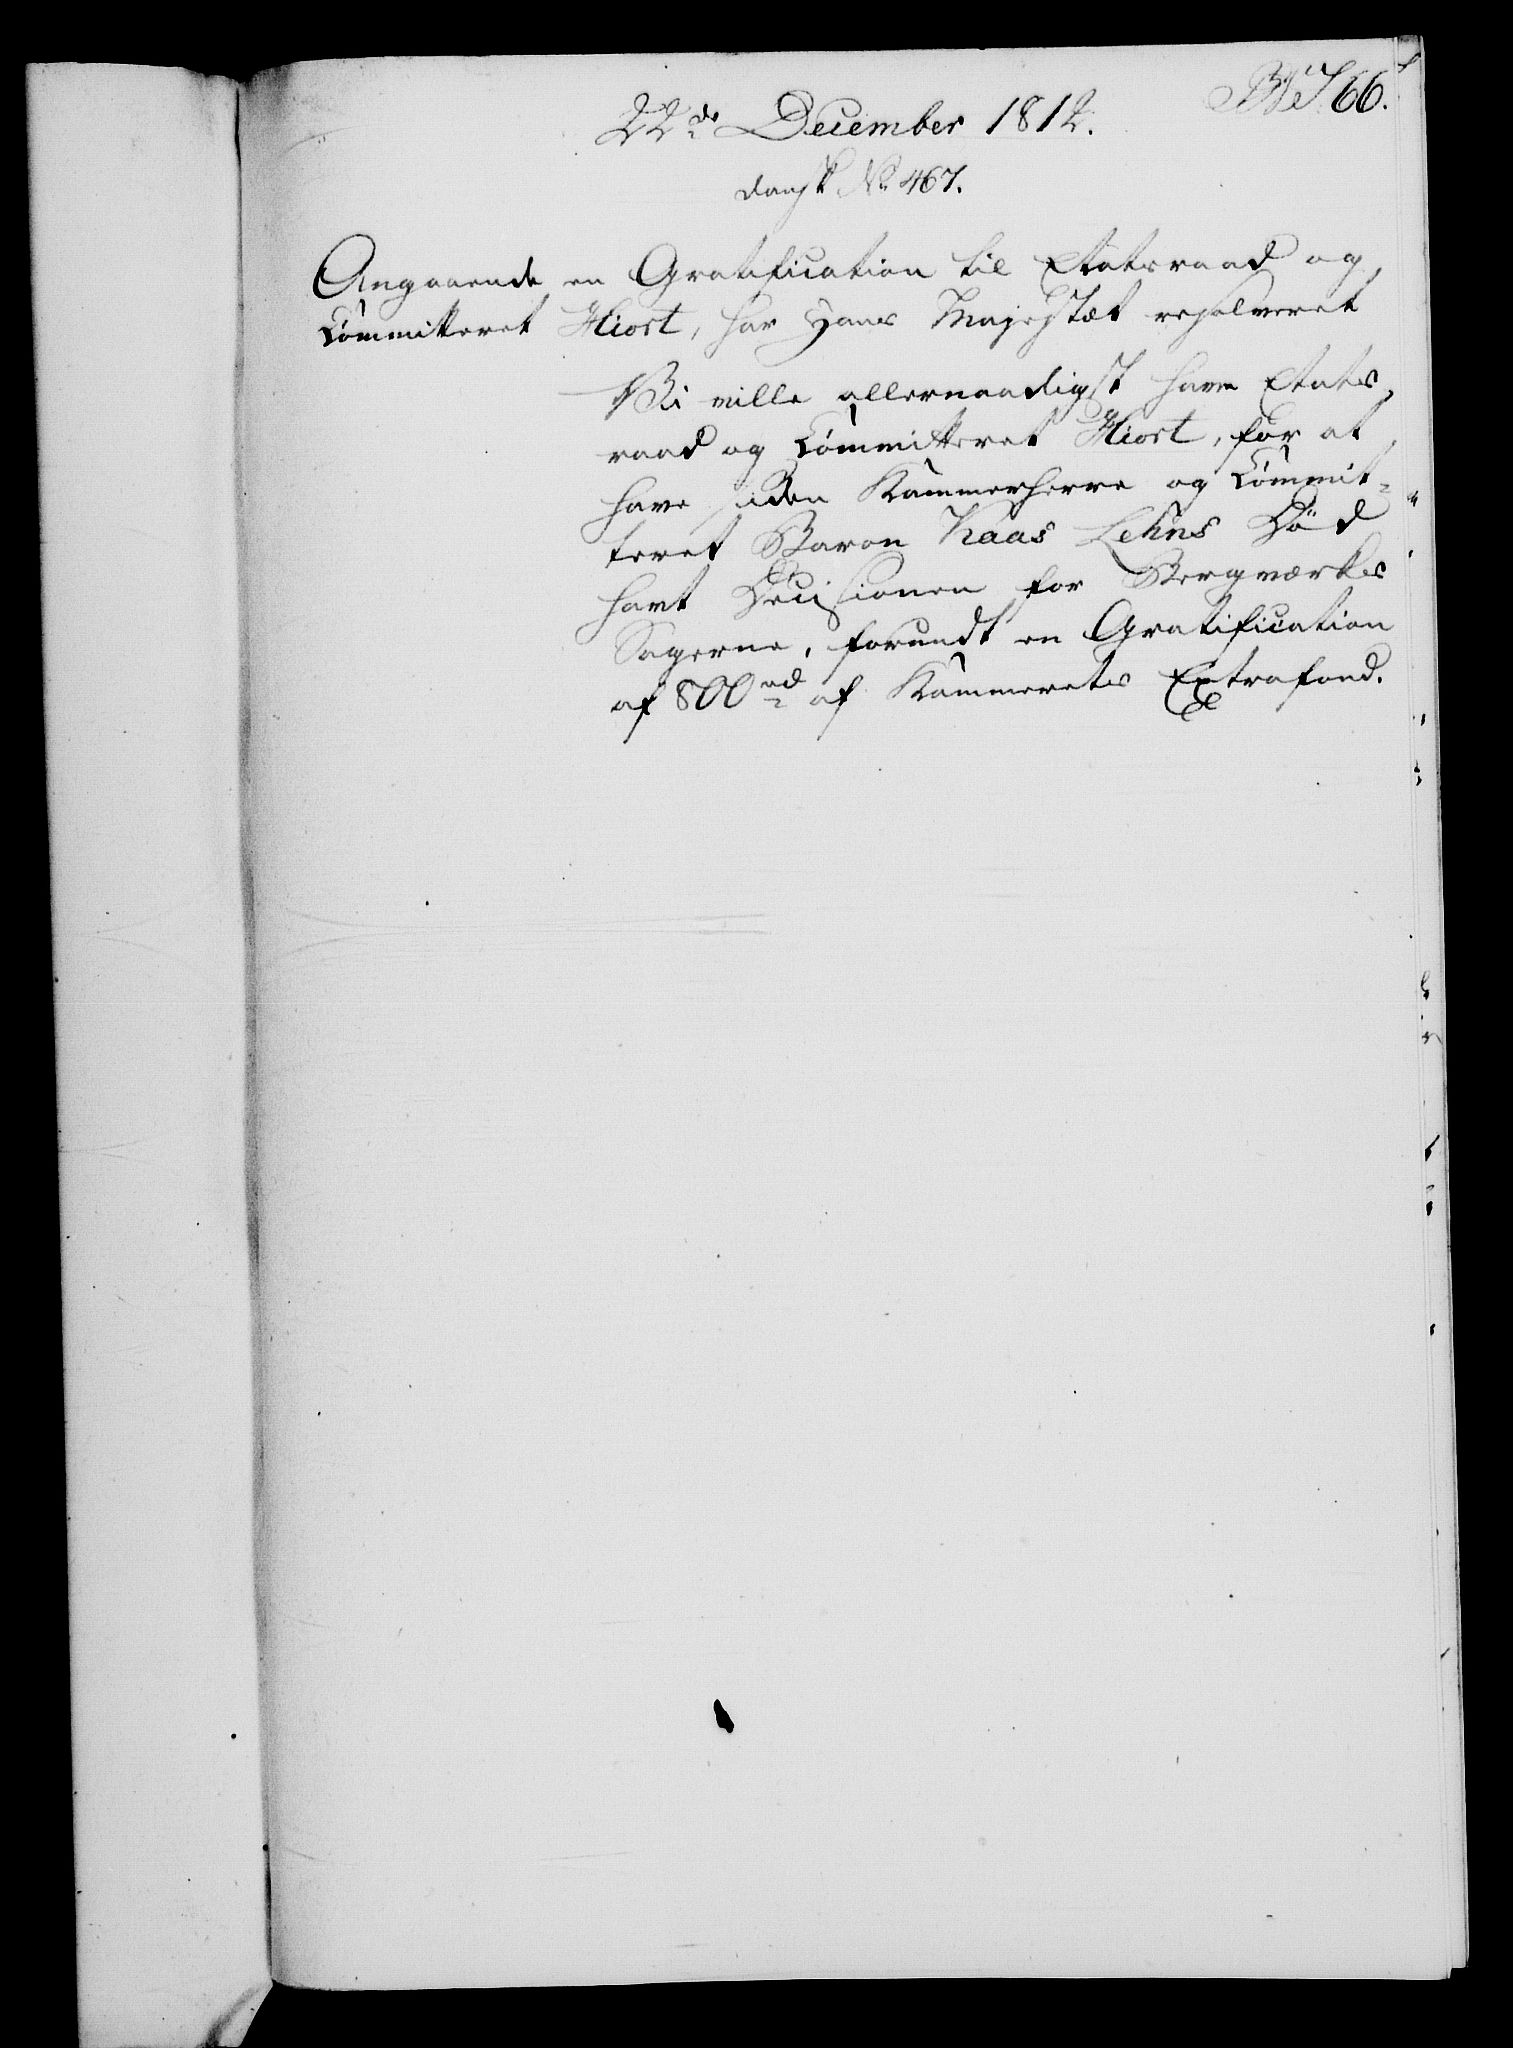 22de December 1812.
dansk No 467.
Angaaende en Gratification til Etatsraad og
Committeret Hiort, har Hans Majestæt resolveret
Vi ville allernaadigst have Etats-
raad og Committeret Hiort, for at
have siden Kammerherre og Commit-
teret Baron Kaas Lehns Död
havt Decisionen for Bergværks
Sagerne, forundt en Gratification
af 800 rd af Kammerets Extrafond.